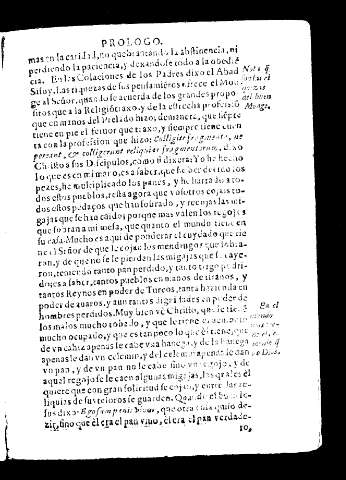 PROLOGO.
mas en la caridad, no quebrantando la abstinencia, ni
perdiendo la paciencia, y dexandose todo a la obedié
cia. En las Colaciones de los Padres dixo el Abad
que las riquezas de sus pensamientos ofrece el Mon
ge al Señor, quando se acuerda de los grandes propo
sitos que a la Religió traxo, y de la estrecha profesió
que en manos del Prelado hizo: de manera, que siépre
tiene en pie el feruor que traxo, y siempre tiene cuen
ta con la profesion que hizo: Colligite fragmenta, ne
pereant, & colligerunt reliquias fragmentorum, dixo
Christo a sus Dicipulos, como si dixera: Yo he hecho
lo que es en mi mano, es a saber, que he bendecido los
pezes, he multiplicado los panes, y he hartado a to-
dos estos pueblos, resta agora que vosotros cojais to-
dos estos pedaços que han sobrado, y recojais las mi-
gajas que se han caido: porque mas valen los regojos
que sobran a mi mesa, que quanto el mundo tiene en
su casa. Mucho es aqui de ponderar el cuydado que tie
ne el Señor de que se cojan los mendrugos que sobra-
ron, y de que no se le pierdan las migajas que se caye-
ron, teniendo tanto pan perdido, y tanto trigo podri-
do: es a saber, tantos pueblos en manos de tiranos, y
tantos Reynos en poder de Turcos, tanta hazienda en
poder de auaros, y aun tantas dignidades en poder de
hombres perdidos. Muy bien vè Christo, que le tiené
los malos mucho robado, y que le tiene el demonio
mucho ocupado, y que es tan poco lo que el tiene, que
de vn cahiz apenas le cabe vna hanega, y de la hanega
apenas le dan vn celemin, y del celemin apenas le dan
vn pan, y de vn pan no le cabe sino vn regojo, y de
aquel regojo se le caen algunas migajas, las quales él
quiere que con gran solicitud se cojan, y entre las re-
liquias de sus tesoros se guarden. Quando el buen Ie-
sus dixo: Ego sum panis viuus, que otra cosa quiso de-
zir, sino que él era el pan viuo, el era el pan verdade-
ro,
Nota q̃
son las ri
quezas
del buen
Monge.
En el